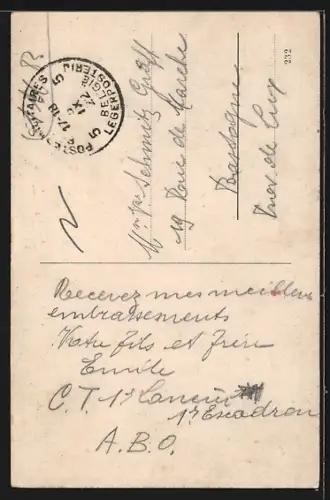 POSTES MILITAIRES 5
BELGIE
LEGERPOSTERIJ 5
17-18
IX
232
Mr Vve Schmitz Graff
19 Rue de Marche
Bastogne
Prov de Lux
Recevez mes meilleurs
embrassements
Votre fils et frère
Emile
C.T. 1r Lancier
1r Escadron
A.B.O.